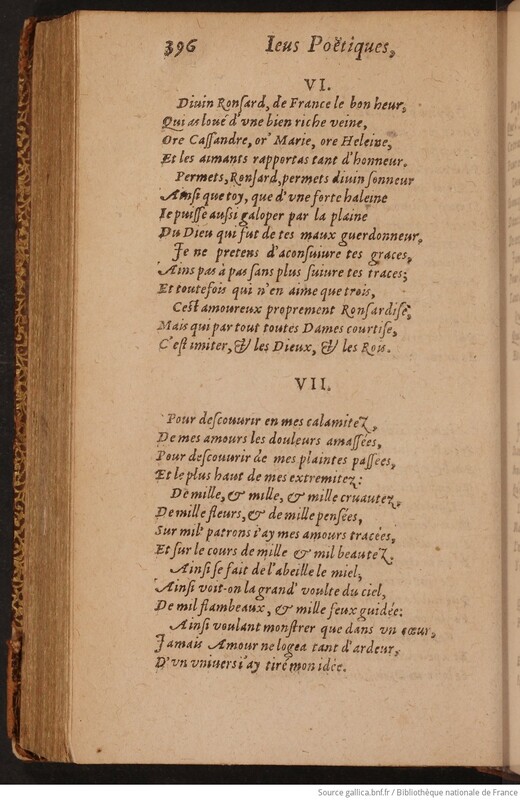 396 Ieus Poëtiques,
VI.
Diuin Ronſard, de France le bon heur,
Qui as loué d'vne bien riche veine,
Ore Caſſandre, or' Marie, ore Heleine,
Et les aimants rapportas tant d'honneur.
Permets, Ronſard, permets diuin ſonneur
Ainſi que toy, que d'vne forte haleine
Ie puiſſe auſsi galoper par la plaine
Du Dieu qui fut de tes maux guerdonneur,
Je ne pretens d'aconſuiure tes graces,
Ains pas à pas ſans plus ſuiure tes traces;
Et toutefois qui n'en aime que trois,
Ceſt amoureux proprement Ronſardiſe,
Mais qui par tout toutes Dames courtiſe,
C'eſt imiter, & les Dieux, & les Rois.
VII.
Pour deſcouurir en mes calamitez,
De mes amours les douleurs amaſſées,
Pour deſcouurir de mes plaintes paſſées,
Et le plus haut de mes extremitez:
De mille, & mille, & mille cruautez,
De mille fleurs, & de mille penſées,
Sur mil' patrons i'ay mes amours tracées,
Et ſur le cours de mille & mil beautez.
Ainſi ſe fait de l'abeille le miel,
Ainſi voit-on la grand' voulte du ciel,
De mil flambeaux, & mille feux guidée:
Ainſi voulant monſtrer que dans vn cœur,
Jamais Amour ne logea tant d'ardeur,
D'vn vniuers i'ay tiré mon idée.
Source gallica.bnf.fr / Bibliothèque nationale de France